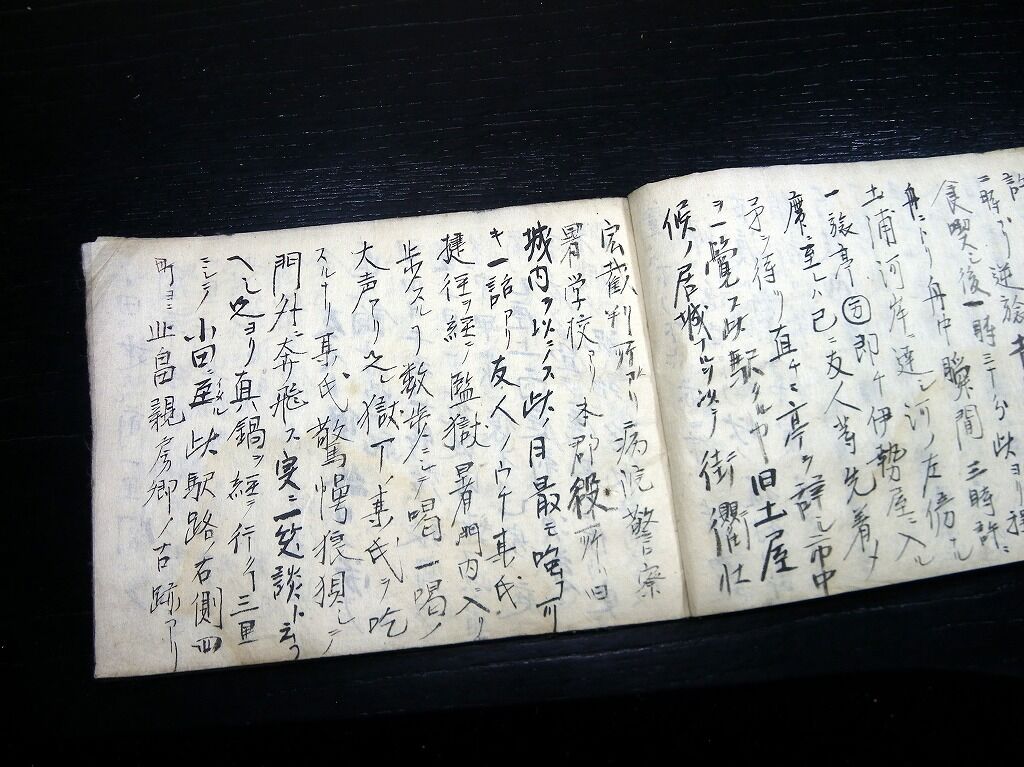 二時ヨリ逆旅
食喫シ後一時三十分此ヨリ
舟ニトリ舟中瞬間三時許ニ
土浦河岸ニ達シ河ノ左傍ナル
一旅亭即チ伊勢屋ニ入ル
席ニ至レハ已ニ友人等先着メ
予ヲ待リ直チニ亭ヲ辞シ市中
ヲ一覧ス此駅タルヤ旧土屋
候ノ居城アルヲ以テ街衢壮
宏裁判所アリ病院警察
署学校アリ本郡役所ハ旧
城内ヲ以ニス此ノ月最モ
キ一話アリ友人ノウチ某氏
捷径ヲ経ニ監獄署門内ニ入リ
歩スルヿ数歩ニシテ喝一喝ノ
大声アリ之レ獄丁ノ某氏ヲ吃
スルナリ某氏驚愕狼狽シテ
門外ニ奔飛ス実ニ一笑談ト云フ
ヘシ之ヨリ真鍋ヲ経テ行クヿ三里
ニシテ小田ニ至ル此駅路ノ右側四
町ヨニ北畠親房郷ノ古跡アリ